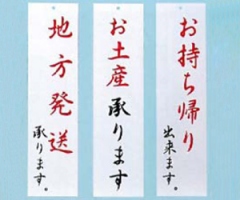 お持ち帰り
出来ます。
お土産承ります
地方発送
承ります。